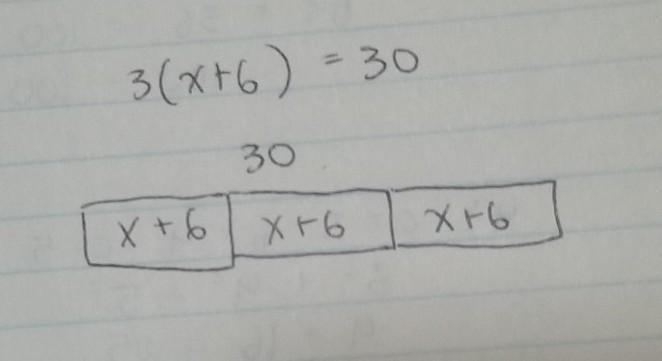 3(x+6) = 30
30
x+6 x+6 x+6